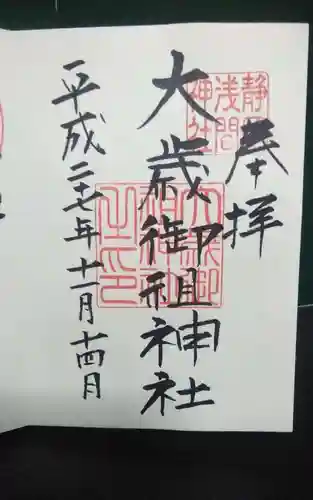 奉拝
静岡浅間神社
大歳御祖神社
大歳御祖神社之印
平成二十七年十一月十四日